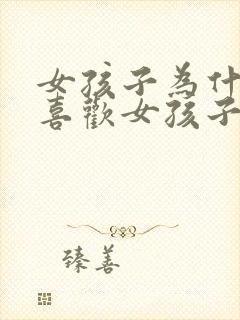 女孩子為什
喜歡女孩子
臻善